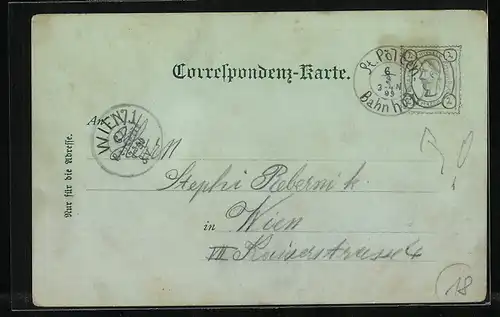 Correspondenz-Karte.
St. Pölten
6
3
99
Bahnhof
An
WIEN 7/1
Stephi Rebernik
in
Wien
VII Kaiserstrasse 4
Nur für die Adresse.
18